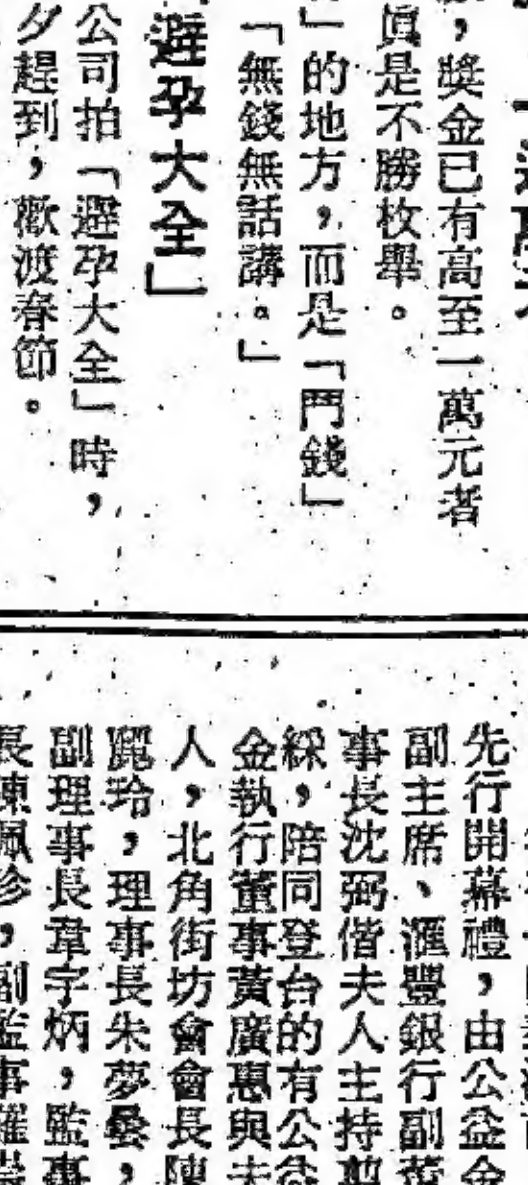 ，獎金已有高至一萬元者
眞是不勝枚舉。
」的地方，而是「鬥錢」
「無錢無話講。」
避孕大全」
公司拍「避孕大全」時，
夕趕到，歡渡春節。
先行開幕禮，由公益金
副主席、滙豐銀行副董
事長沈弼偕夫人主持剪
綵，陪同登台的有公益
金執行董事黃廣惠與夫
人，北角街坊會會長陳
麗玲，理事長朱夢曇，
副理事長韋字炳，監事
長陳佩珍，副監事羅